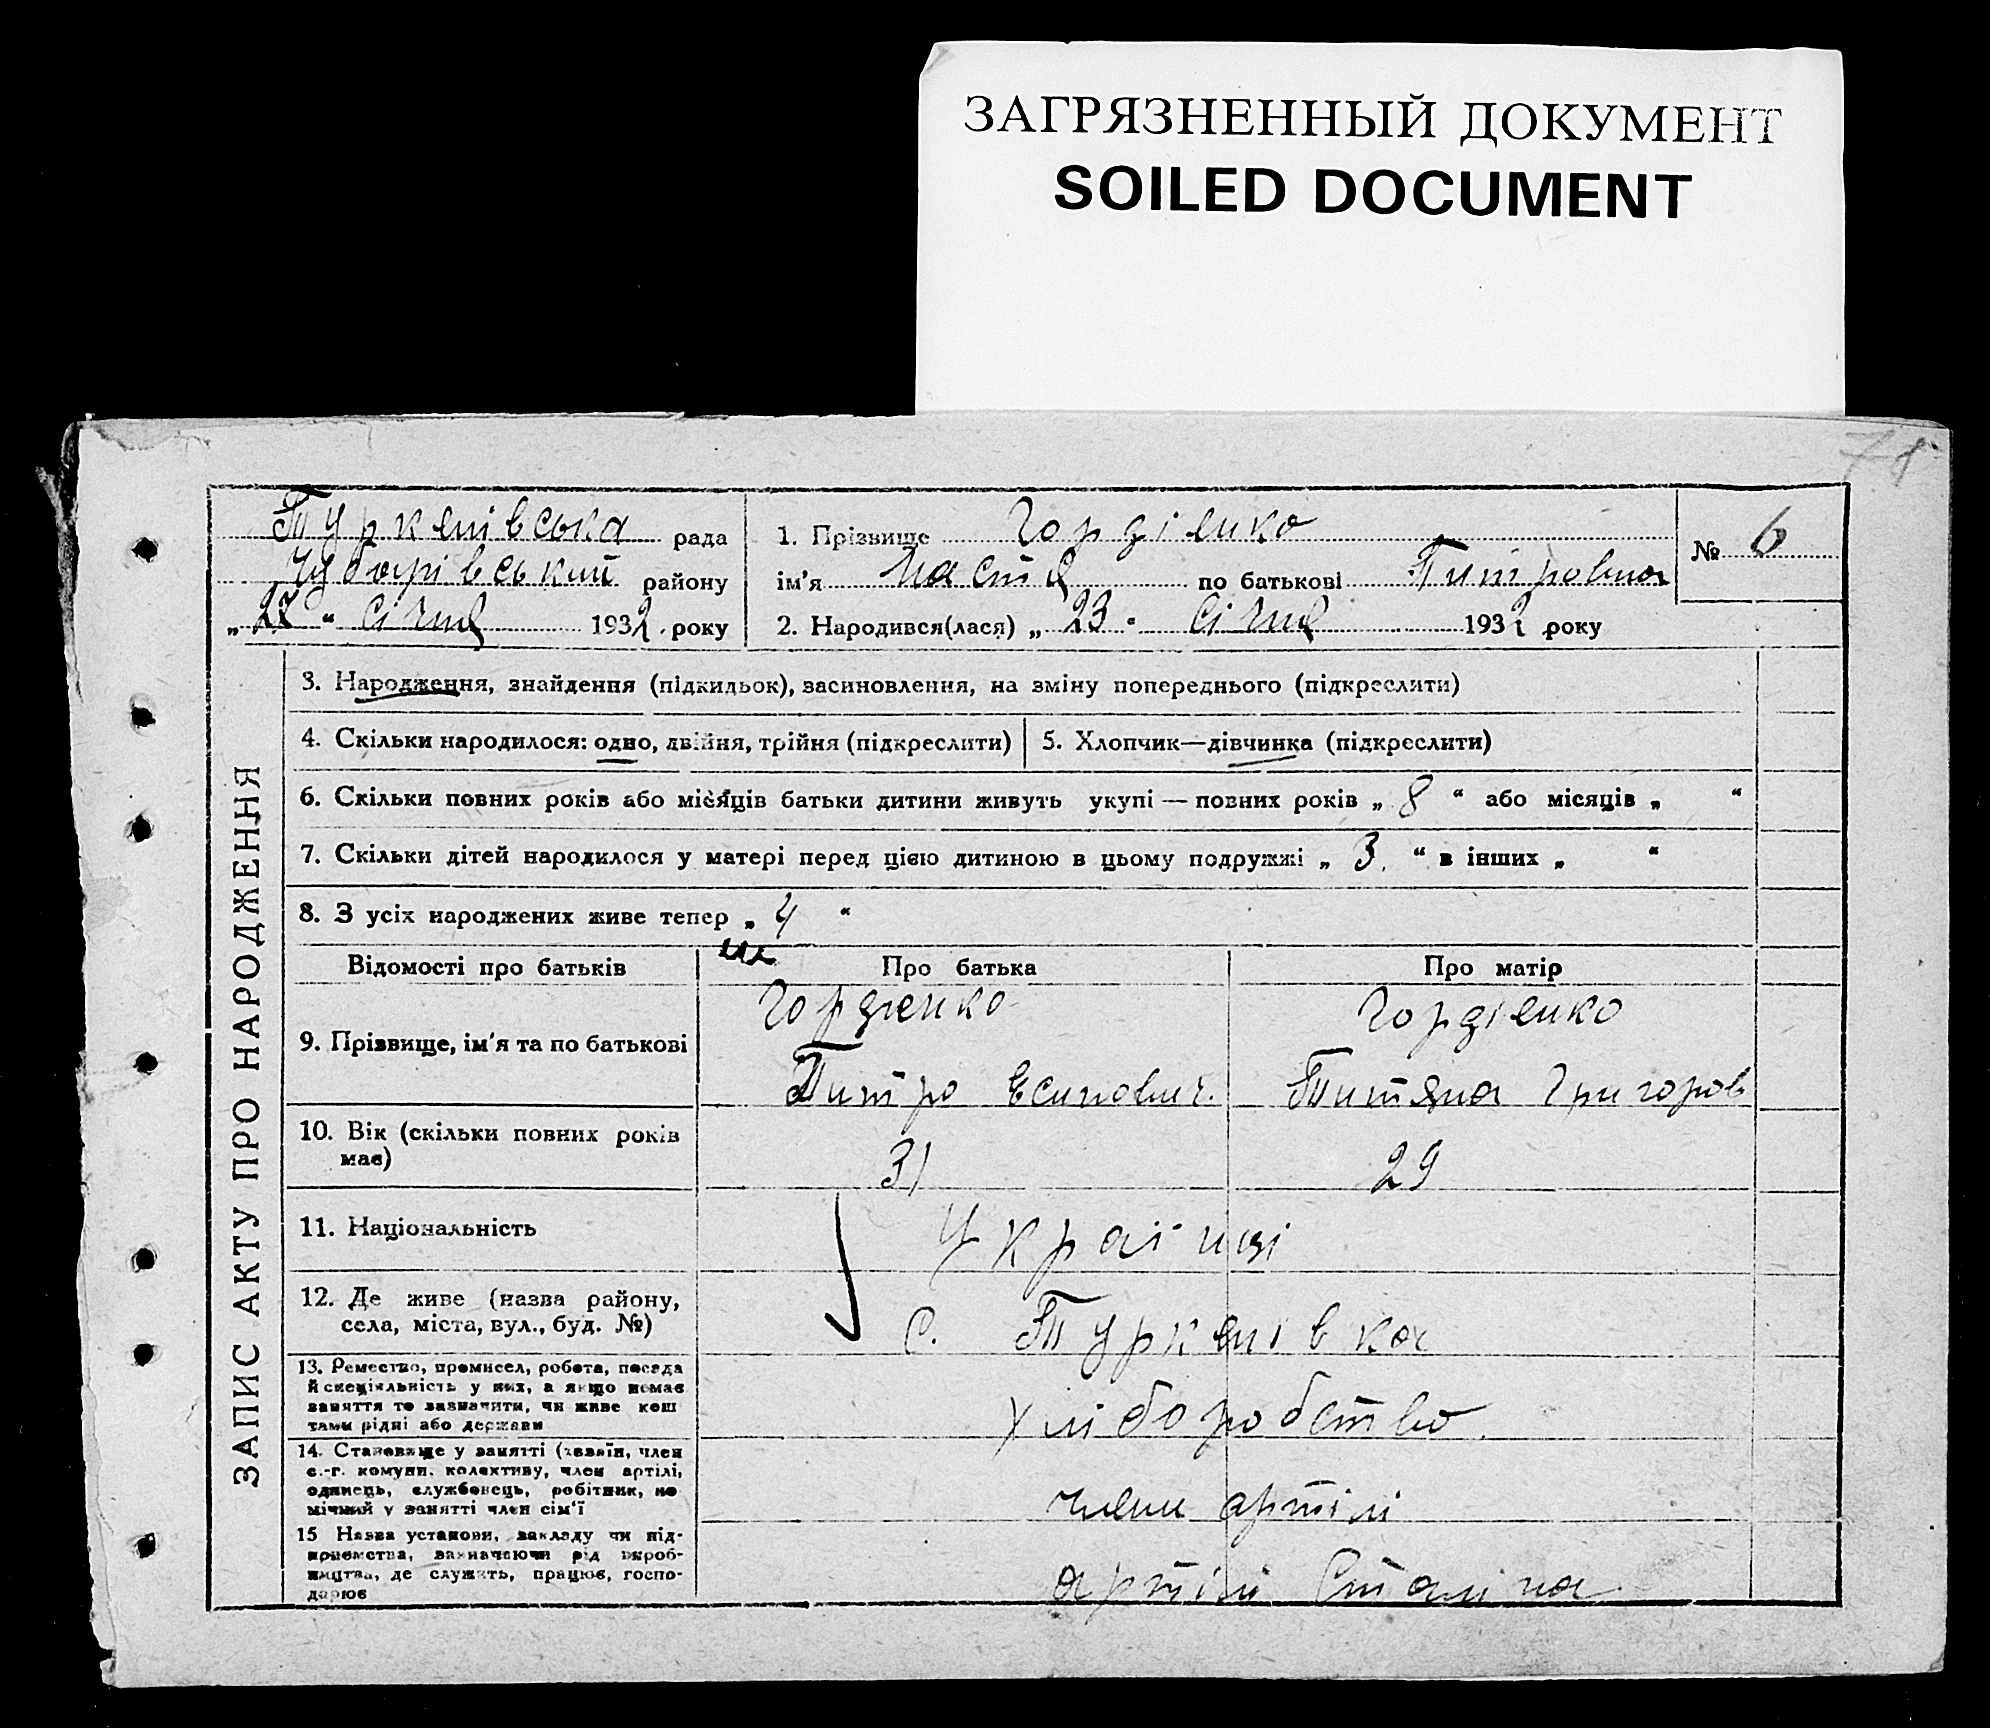 ЗАГРЯЗНЕННЫЙ ДОКУМЕНТ
SOILED DOCUMENT
78
Туркенівська рада
Чубарівський району
„27“ Січня 1932 року
1. Прізвище Гордіенко
ім’я Настя по батькові Питровна
№ 6
2. Народився(лася) „23“ Січня 1932 року
ЗАПИС АКТУ ПРО НАРОДЖЕННЯ
3. Народження, знайдення (підкидьок), засиновлення, на зміну попереднього (підкреслити)
4. Скільки народилося: одно, двійня, трійня (підкреслити)
5. Хлопчик—дівчинка (підкреслити)
6. Скільки повних років або місяців батьки дитини живуть укупі — повних років „ 8 “ або місяців „ “
7. Скільки дітей народилося у матері перед цією дитиною в цьому подружжі „ 3. “ в інших „ “
8. З усіх народжених живе тепер „ 4 “
Відомості про батьків
Про батька
Про матір
9. Прізвище, ім’я та по батькові
Гордіенко
Питро Есипович.
Гордіенко
Титяна Григоров
10. Вік (скільки повних років
має)
31
29
11. Національність
Українці
12. Де живе (назва району,
села, міста, вул., буд. №)
с. Туркенівка
13. Ремество, промисел, робота, посада
й спеціяльність у них, а якщо немає
заняття то зазначити, чи живе кош
тами рідні або держави
хліборобство.
14. Становище у занятті (хазяїн, член
с.-г. комуни, колективу, член артілі,
одинець, службовець, робітник, по
мічний у занятті член сім’ї
члени артілі
15 Назва установи, закладу чи під-
приємства, зазначаючи рід вироб-
ництва, де служить, працює, госпо-
дарює
артілі Сталіна